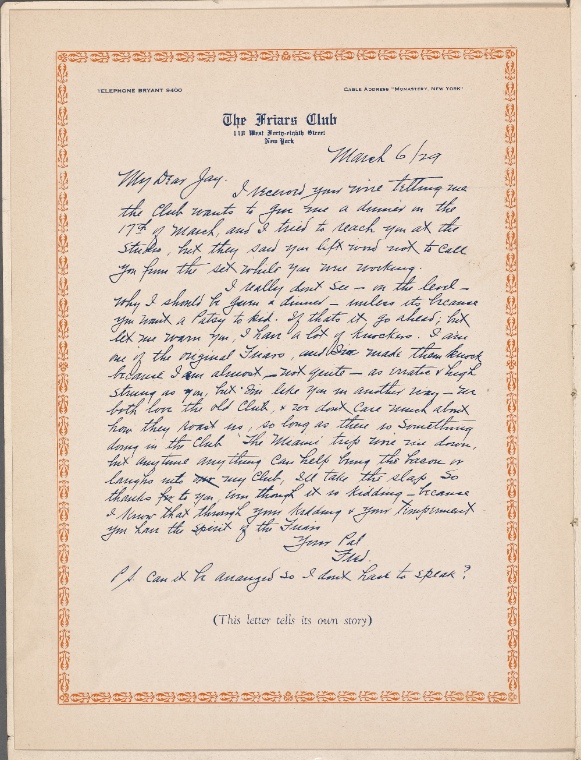 TELEPHONE BRYANT 9400
CABLE ADDRESS "MONASTERY, NEW YORK"
The Friars Club
110 West Forty-eighth Street
New York
March 6/29
My Dear Jay.
I received your wire telling me
the Club wants to give me a dinner on the
17th of March, and I tried to reach you at the
Studio, but they said you left word not to call
you from the set while you were working.
I really dont see – on the level –
why I should be given a dinner – unless its because
you want a Patsy to kid. If thats it go ahead; but
let me warn you, I have a lot of knockers. I am
one of the original Friars, and made them knock
because I am almost – not quite – as erratic & high
strung as you, but I'm like you in another way – we
both love the old Club, & we dont care much about
how they roast us, so long as there is something
doing in the Club. The Miami trip wore me down,
but anytime anything can help bring the bacon or
laughs into my Club, I'll take the slap. So
thanks to you, even though it is kidding – because
I know that through your kidding & your temperment
you have the spirit of the Friars
Your Pal
Fred.
P.S. Can it be arranged so I dont have to speak?
(This letter tells its own story)